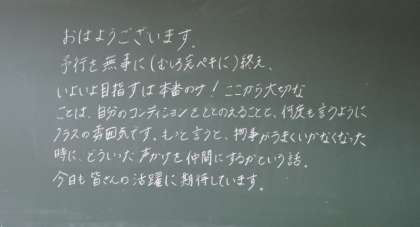 おはようございます。
予行を無事に(むしろ完ペキに)終え、
いよいよ目指すは本番のみ!ここから大切な
ことは、自分のコンディションをととのえることと、何度も言うように
クラスの雰囲気です。もっと言うと、物事がうまくいかなくなった
時に、どういった声かけを仲間にするかという話。
今日も皆さんの活躍に期待しています。